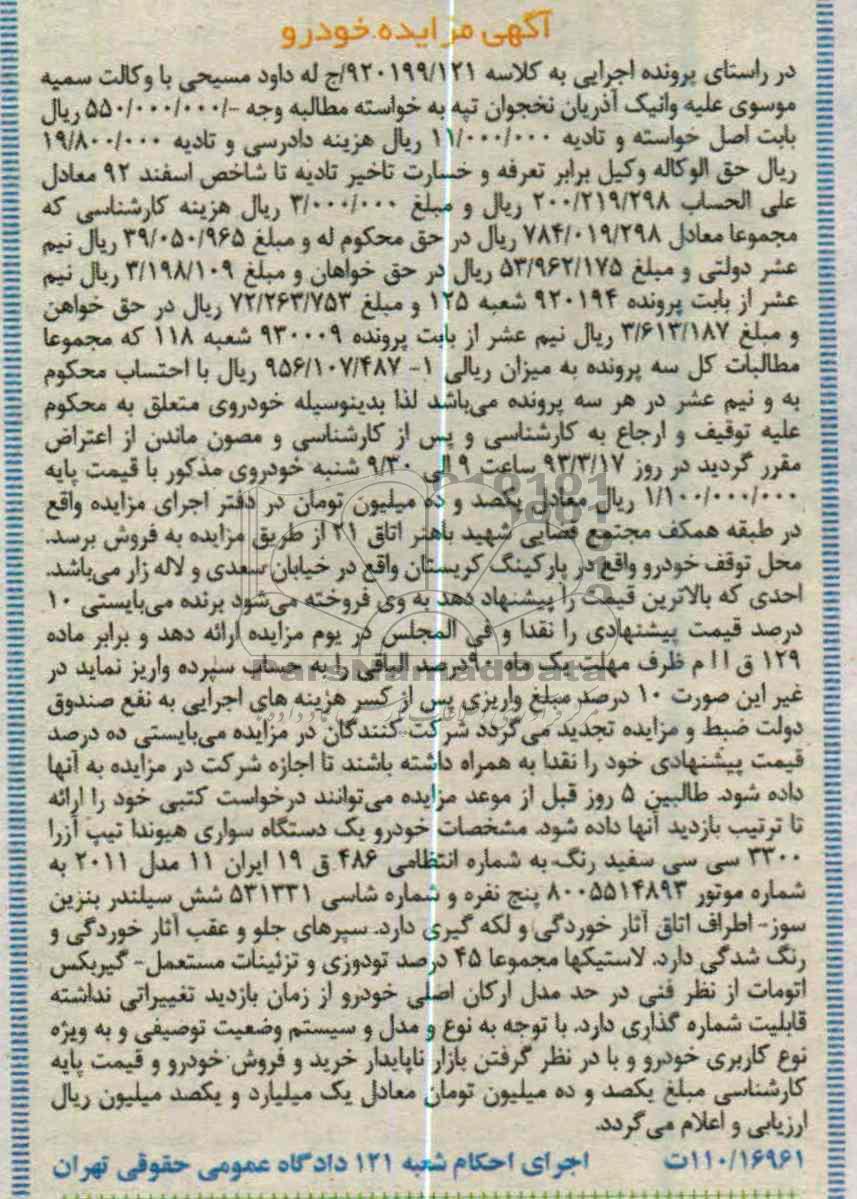 آگهی مزایده خودرو
در راستای پرونده اجرایی به کلاسه ۹۲۰۱۹۹/۱۲۱/ج له داود مسیحی با وکالت سمیه
موسوی علیه وانیک آذریان نخجوان تپه به خواسته مطالبه وجه -/۵۵۰/۰۰۰/۰۰۰ ریال
بابت اصل خواسته و تادیه ۱۱/۰۰۰/۰۰۰ ریال هزینه دادرسی و تادیه ۱۹/۸۰۰/۰۰۰
ریال حق الوکاله وکیل برابر تعرفه و خسارت تاخیر تادیه تا شاخص اسفند ۹۲ معادل
علی الحساب ۲۰۰/۲۱۹/۲۹۸ ریال و مبلغ ۳/۰۰۰/۰۰۰ ریال هزینه کارشناسی که
مجموعا معادل ۷۸۴/۰۱۹/۲۹۸ ریال در حق محکوم له و مبلغ ۳۹/۰۵۰/۹۶۵ ریال نیم
عشر دولتی و مبلغ ۵۳/۹۶۲/۱۷۵ ریال در حق خواهان و مبلغ ۳/۱۹۸/۱۰۹ ریال نیم
عشر از بابت پرونده ۹۲۰۱۹۴ شعبه ۱۲۵ و مبلغ ۷۲/۲۶۳/۷۵۳ ریال در حق خواهن
و مبلغ ۳/۶۱۳/۱۸۷ ریال نیم عشر از بابت پرونده ۹۳۰۰۰۹ شعبه ۱۱۸ که مجموعا
مطالبات کل سه پرونده به میزان ریالی ۱- ۹۵۶/۱۰۷/۴۸۷ ریال با احتساب محکوم
به و نیم عشر در هر سه پرونده می‌باشد لذا بدینوسیله خودروی متعلق به محکوم
علیه توقیف و ارجاع به کارشناسی و پس از کارشناسی و مصون ماندن از اعتراض
مقرر گردید در روز ۹۳/۳/۱۷ ساعت ۹ الی ۹/۳۰ شنبه خودروی مذکور با قیمت پایه
۱/۱۰۰/۰۰۰/۰۰۰ ریال معادل یکصد و ده میلیون تومان در دفتر اجرای مزایده واقع
در طبقه همکف مجتمع قضایی شهید باهنر اتاق ۲۱ از طریق مزایده به فروش برسد.
محل توقف خودرو واقع در پارکینگ کریستان واقع در خیابان سعدی و لاله زار می‌باشد.
احدی که بالاترین قیمت را پیشنهاد دهد به وی فروخته می‌شود برنده می‌بایستی ۱۰
درصد قیمت پیشنهادی را نقدا و فی المجلس در یوم مزایده ارائه دهد و برابر ماده
۱۲۹ ق ا ا م ظرف مهلت یک ماه ۹۰درصد الباقی را به حساب سپرده واریز نماید در
غیر این صورت ۱۰ درصد مبلغ واریزی پس از کسر هزینه های اجرایی به نفع صندوق
دولت ضبط و مزایده تجدید می‌گردد شرکت کنندگان در مزایده می‌بایستی ده درصد
قیمت پیشنهادی خود را نقدا به همراه داشته باشند تا اجازه شرکت در مزایده به آنها
داده شود. طالبین ۵ روز قبل از موعد مزایده می‌توانند درخواست کتبی خود را ارائه
تا ترتیب بازدید آنها داده شود. مشخصات خودرو یک دستگاه سواری هیوندا تیپ آزرا
۳۳۰۰ سی سی سفید رنگ به شماره انتظامی ۴۸۶ ق ۱۹ ایران ۱۱ مدل ۲۰۱۱ به
شماره موتور ۸۰۰۵۵۱۴۸۹۳ پنج نفره و شماره شاسی ۵۳۱۳۳۱ شش سیلندر بنزین
سوز- اطراف اتاق آثار خوردگی و لکه گیری دارد. سپرهای جلو و عقب آثار خوردگی و
رنگ شدگی دارد. لاستیکها مجموعا ۴۵ درصد تودوزی و تزئینات مستعمل- گیربکس
اتومات از نظر فنی در حد مدل ارکان اصلی خودرو از زمان بازدید تغییراتی نداشته
قابلیت شماره گذاری دارد. با توجه به نوع و مدل و سیستم وضعیت توصیفی و به ویژه
نوع کاربری خودرو و با در نظر گرفتن بازار ناپایدار خرید و فروش خودرو و قیمت پایه
کارشناسی مبلغ یکصد و ده میلیون تومان معادل یک میلیارد و یکصد میلیون ریال
ارزیابی و اعلام می‌گردد.
۱۱۰/۱۶۹۶۱ت اجرای احکام شعبه ۱۲۱ دادگاه عمومی حقوقی تهران
ParsNamadData